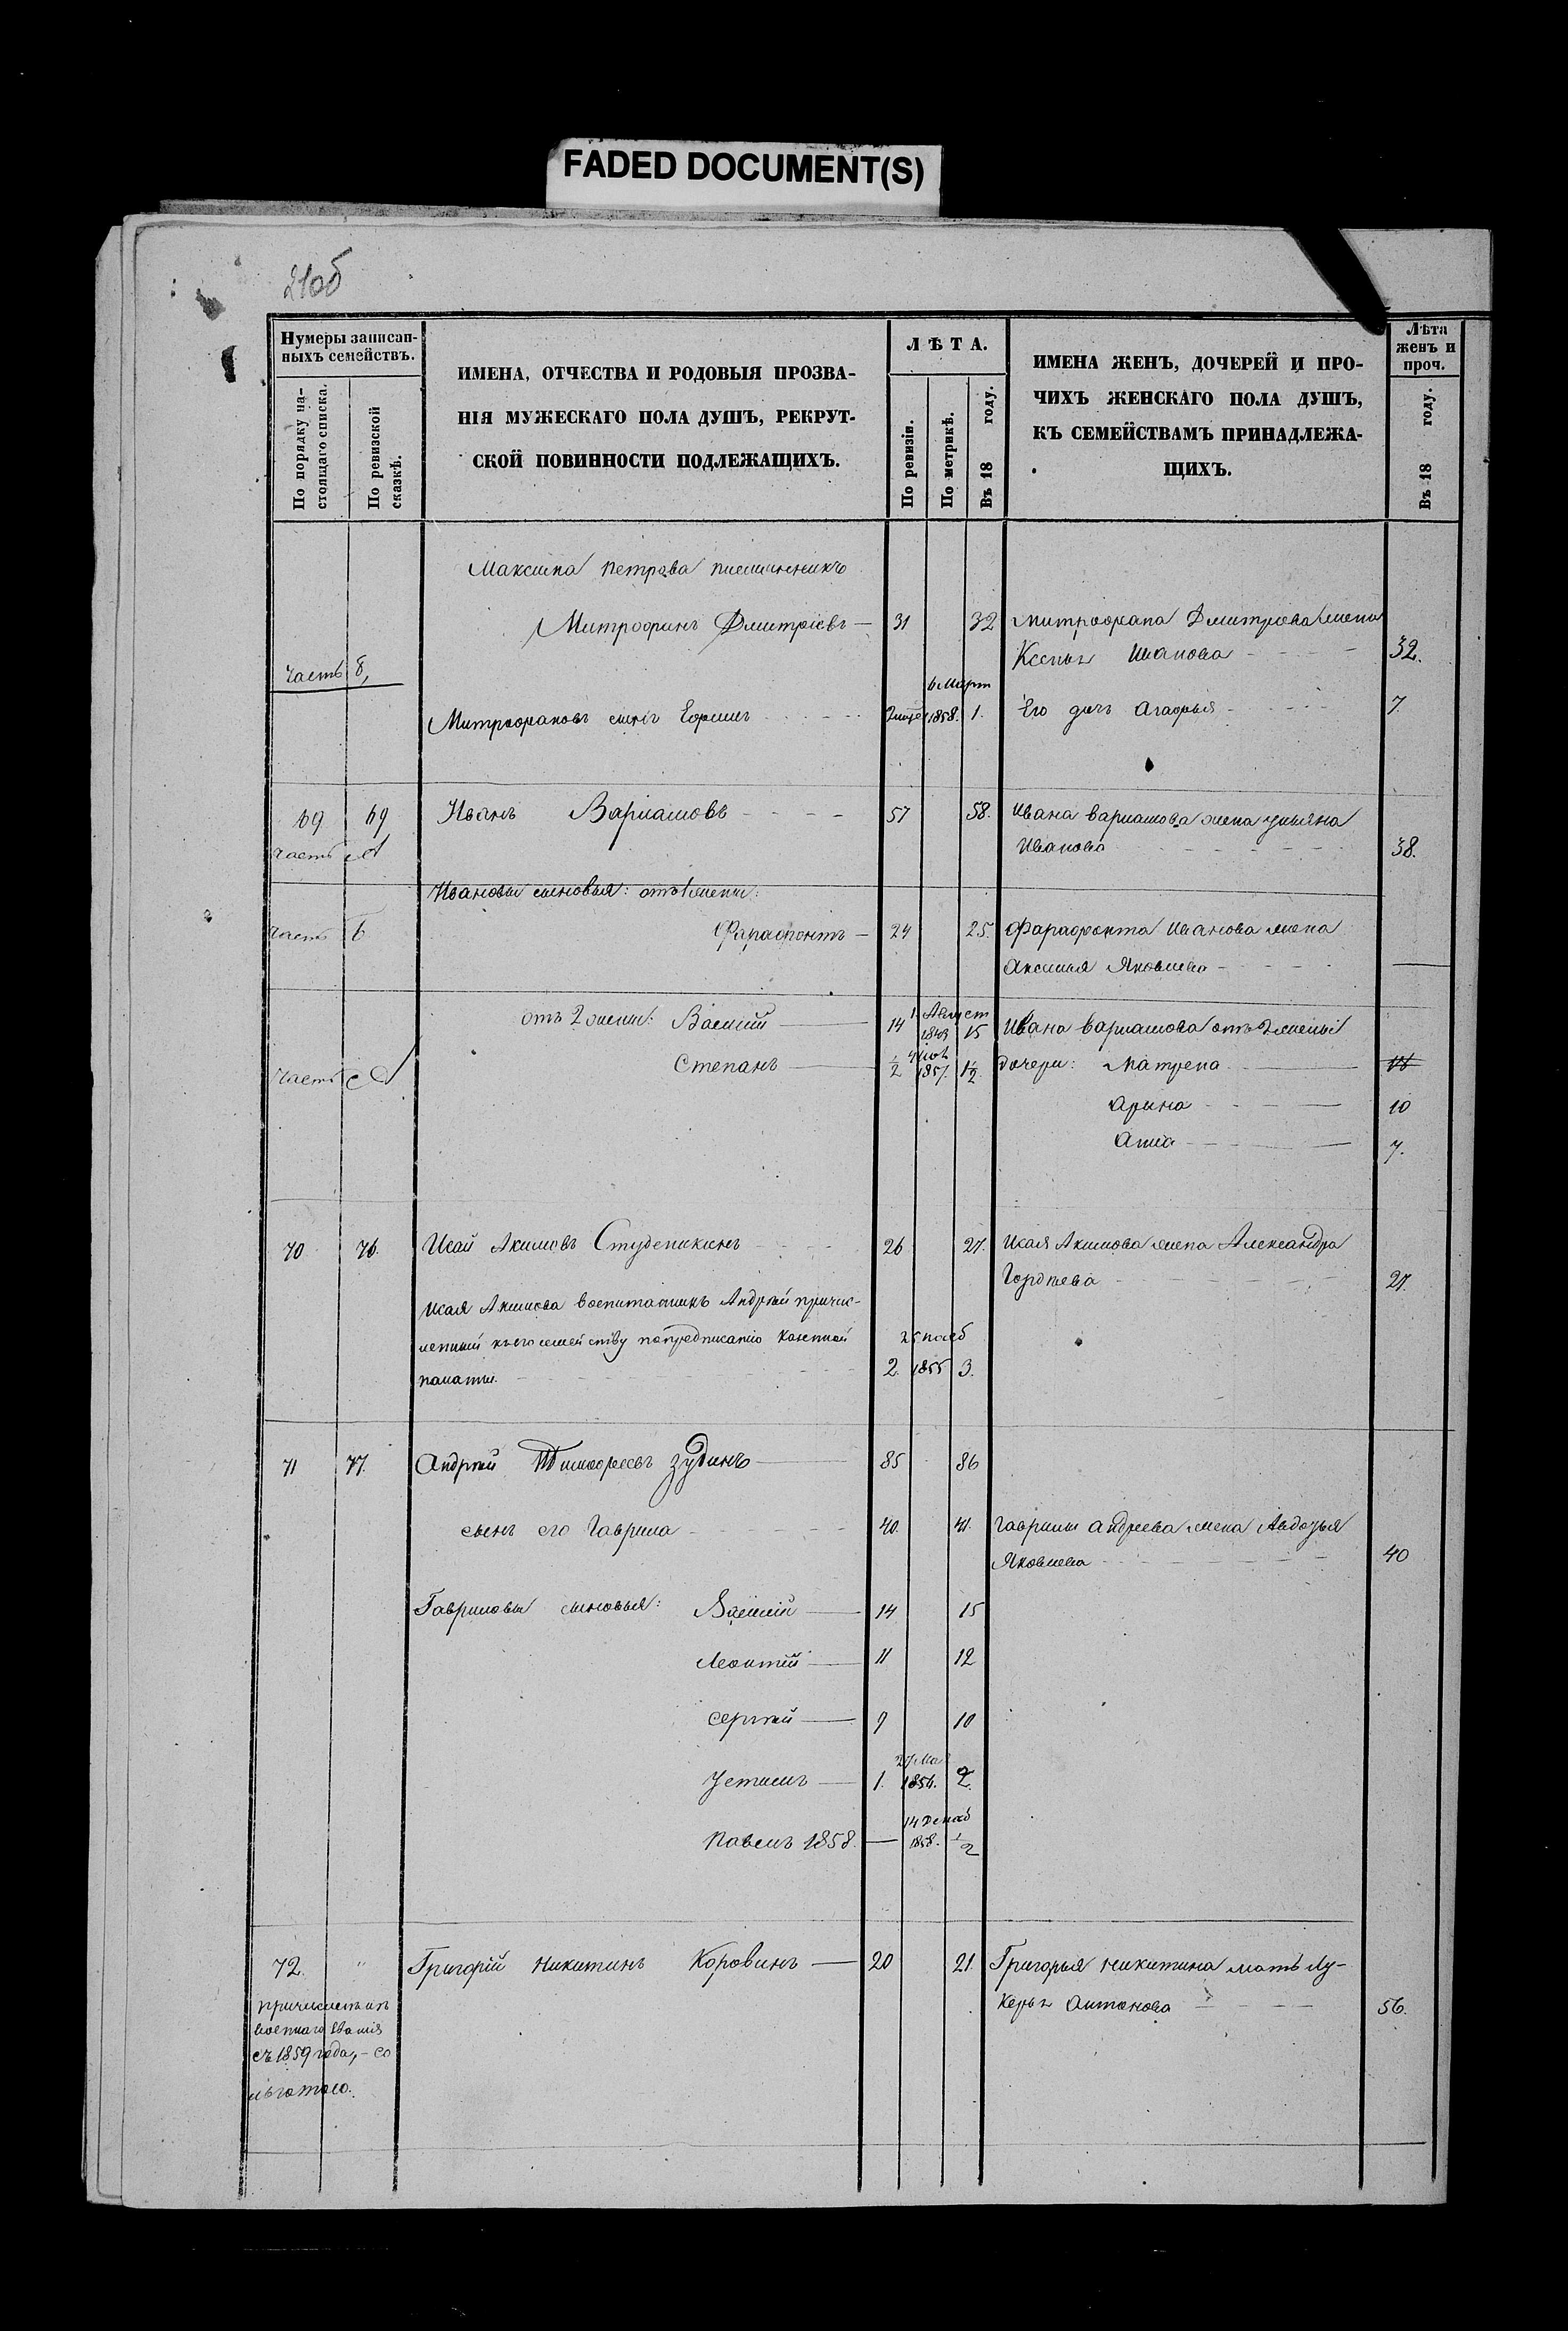 FADED DOCUMENT(S)
210б
Нумеры записан-
ныхъ семействъ.
По порядку на-
стоящаго списка.
По ревизской
сказкѣ.
ИМЕНА, ОТЧЕСТВА И РОДОВЫЯ ПРОЗВА-
НІЯ МУЖЕСКАГО ПОЛА ДУШЪ, РЕКРУТ-
СКОЙ ПОВИННОСТИ ПОДЛЕЖАЩИХЪ.
ЛѢТА.
По ревизіи.
По метрикѣ.
Въ 18 году.
ИМЕНА ЖЕНЪ, ДОЧЕРЕЙ И ПРО-
ЧИХЪ ЖЕНСКАГО ПОЛА ДУШЪ,
КЪ СЕМЕЙСТВАМЪ ПРИНАДЛЕЖА-
ЩИХЪ.
Лѣта
женъ и
проч.
Въ 18 году.
Максима Петрова племянникъ
Митрофанъ Дмитріевъ 31 32 Митрофана Дмитрева жена
Ксенья Иванова 32.
часть 8,
6 Март
Митрофановъ сынъ Ефимъ 1858. 1. Его дочь Агафья 7.
69 69 Иванъ Варламовъ 57 58. Ивана Варламова жена Ульяна
часть А Иванова 38.
Ивановы сыновья: отъ 1 жены:
часть Б Фарафонтъ 24 25. Фарафонта Иванова жена
Аксинья Яковлева
отъ 2 жены: Василій 14 1 Август 1843 15 Ивана Варламова отъ 2 жены
часть А Степанъ 1/2 1857. 1 1/2. дочери: Матрена
Арина 10
Анна 7.
70 76. Исай Акимовъ Студеникинъ 26 27. Исая Акимова жена Александра
Гордѣева 27.
Исая Акимова воспитанникъ Андрѣй причис-
ленный къ его семейству по предписанію Казенной 25 нояб
палаты. 2. 1855 3.
71 77. Андрѣй Тимофеевъ Зудинъ 85 86
сынъ его Гаврила 40. 41. Гаврилы Андреева жена Авдотья
Яковлева 40
Гавриловы сыновья: Василій 14 15
Леонтій 11 12
Сергѣй 9 10
Устинъ 1. 27 Ма 1856. 2.
Павелъ 1858. 14 Декаб 1858. 1/2
72. " Григорій Никитинъ Коровинъ 20 21 Григорья Никитина мать Лу-
керья Антонова 56.
причисленъ изъ
военнаго званія
съ 1859 года, – со
льготою.